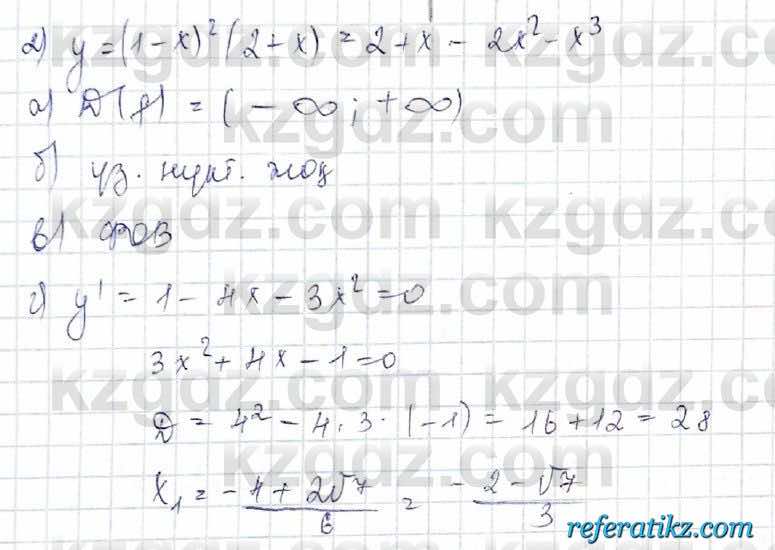 2) y = (1-x)²(2+x) = 2+x - 2x² - x³
а) D(f) = (-∞; +∞)
б) үз. нүкт. жоқ
в) ФОВ
г) y' = 1 - 4x - 3x² = 0
3x² + 4x - 1 = 0
D = 4² - 4·3·(-1) = 16 + 12 = 28
x₁ = -(4+2√7)/6 = -(2-√7)/3
kzgdz.com
referatikz.com